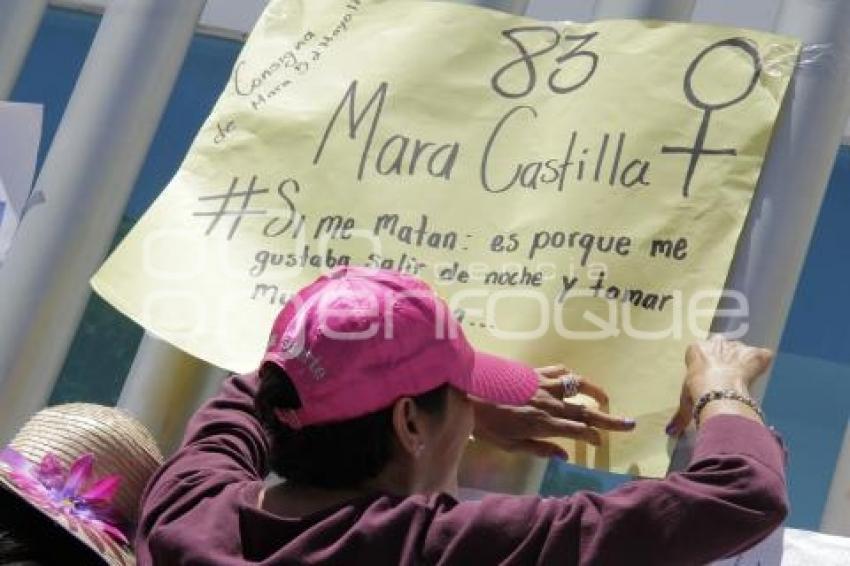 Consigna
de Mara 5 d Mayo
83
Mara Castilla ♀
#Si me Matan: es porque me
gustaba salir de noche y tamar
agenciaenfoque